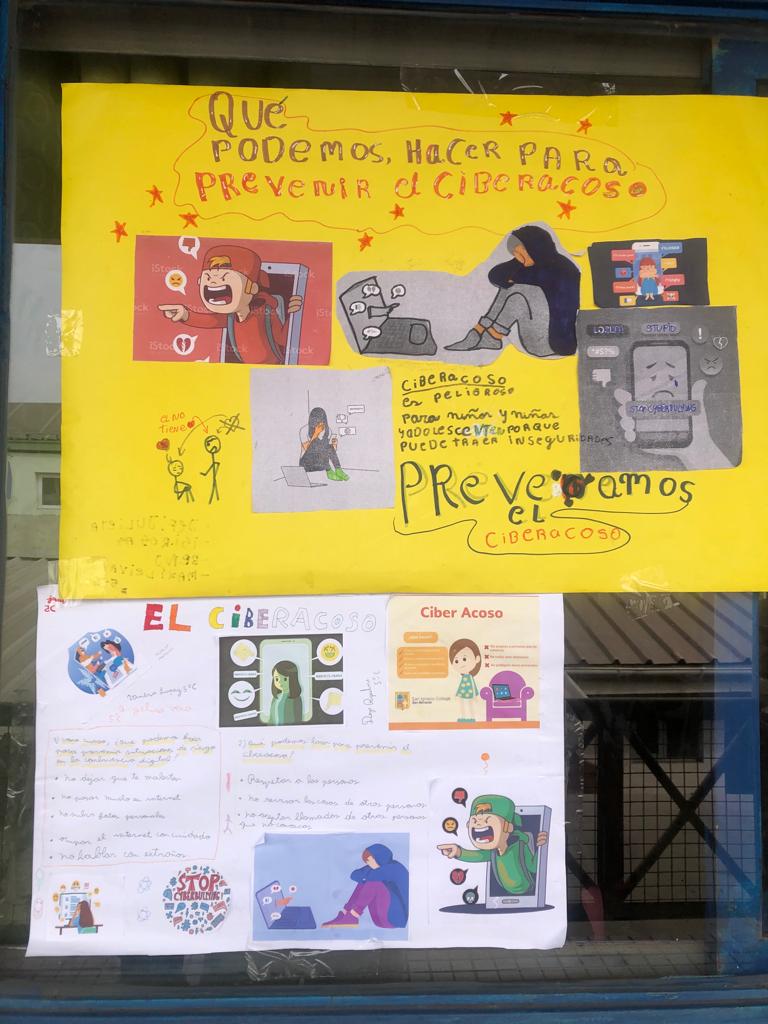 QUÉ
PODEMOS, HACER PARA
PREVENIR el CIBERACOSO
iStock
LOSER!
STUPID
*#$?!
STOP CYBERBULLYING
CIBERACOSO
es PELIGROSO
PARA niños y niñas
y ADOLESCENTES PORQUE
PUEDE TRAER INSEGURIDADES
el NO
TIENE
PREVENGAMOS
el
CIBERACOSO
5°C
EL CIBERACOSO
Ciber Acoso
¿Qué hacer?
San Ignacio College
5°C
¿que podemos hacer
para prevenir situaciones de riesgo
en la convivencia digital?
• no dejar que te molesten
• no pasar mucho en internet
• no subir fotos personales
• ocupar el internet con cuidado
• no hablar con extraños
2) Qué podemos hacer para prevenir el
ciberacoso?
• Respetar a las personas
• no revisar las cosas de otras personas
• no aceptar llamados de otras personas
que no conozcas
STOP
CYBERBULLYING!